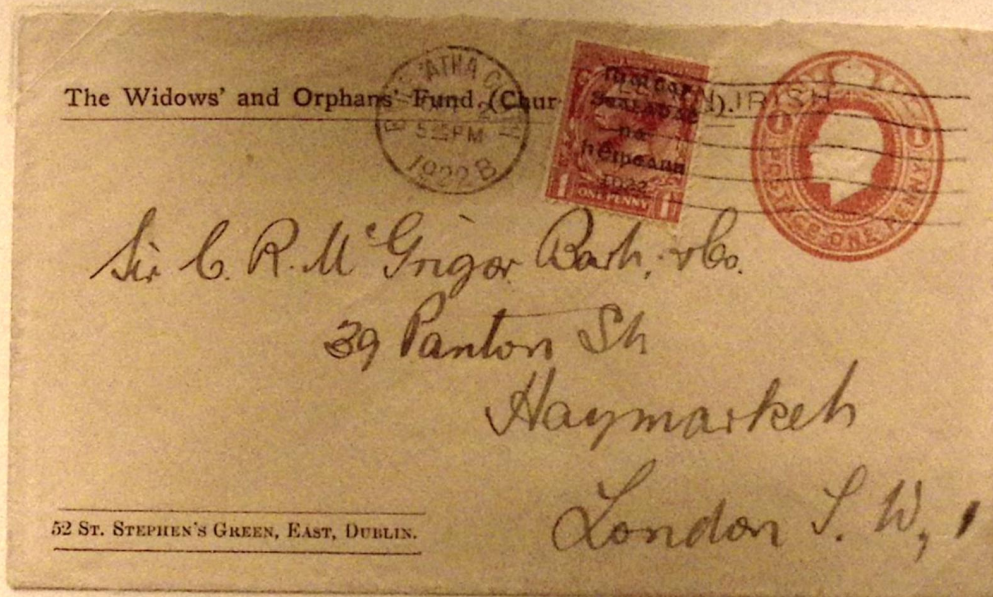 The Widows' and Orphans' Fund (Chur
5 PM
1922 B
Rialtas
Sealadac
na
hÉireann
1922
1 ONE PENNY 1
IRISH
POSTAGE ONE PENNY
Sir C. R. McGrigor Bart. & Co.
39 Panton St
Haymarket
London S. W, 1
52 St. Stephen's Green, East, Dublin.